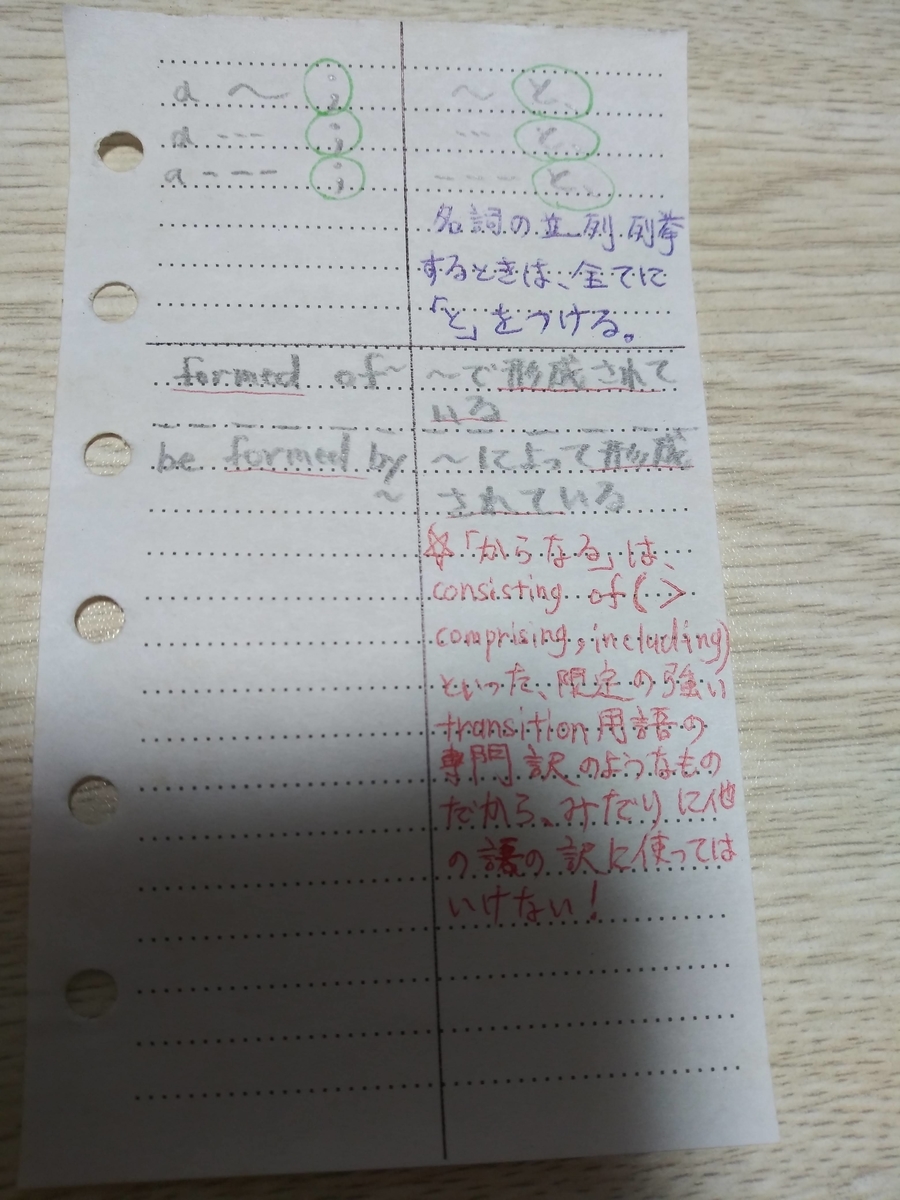 a 〜 ;
〜 と、
a --- ;
--- と、
a --- ;
---- と、
名詞の並列、列挙
するときは、全てに
「と」をつける。
formed of〜
〜で形成されて
いる
be formed by
〜
〜によって形成
されている
☆「からなる」は、
consisting of (>
comprising, including)
といった、限定の強い
transition用語の
専門訳のようなもの
だから、みだりに他
の語の訳に使っては
いけない!